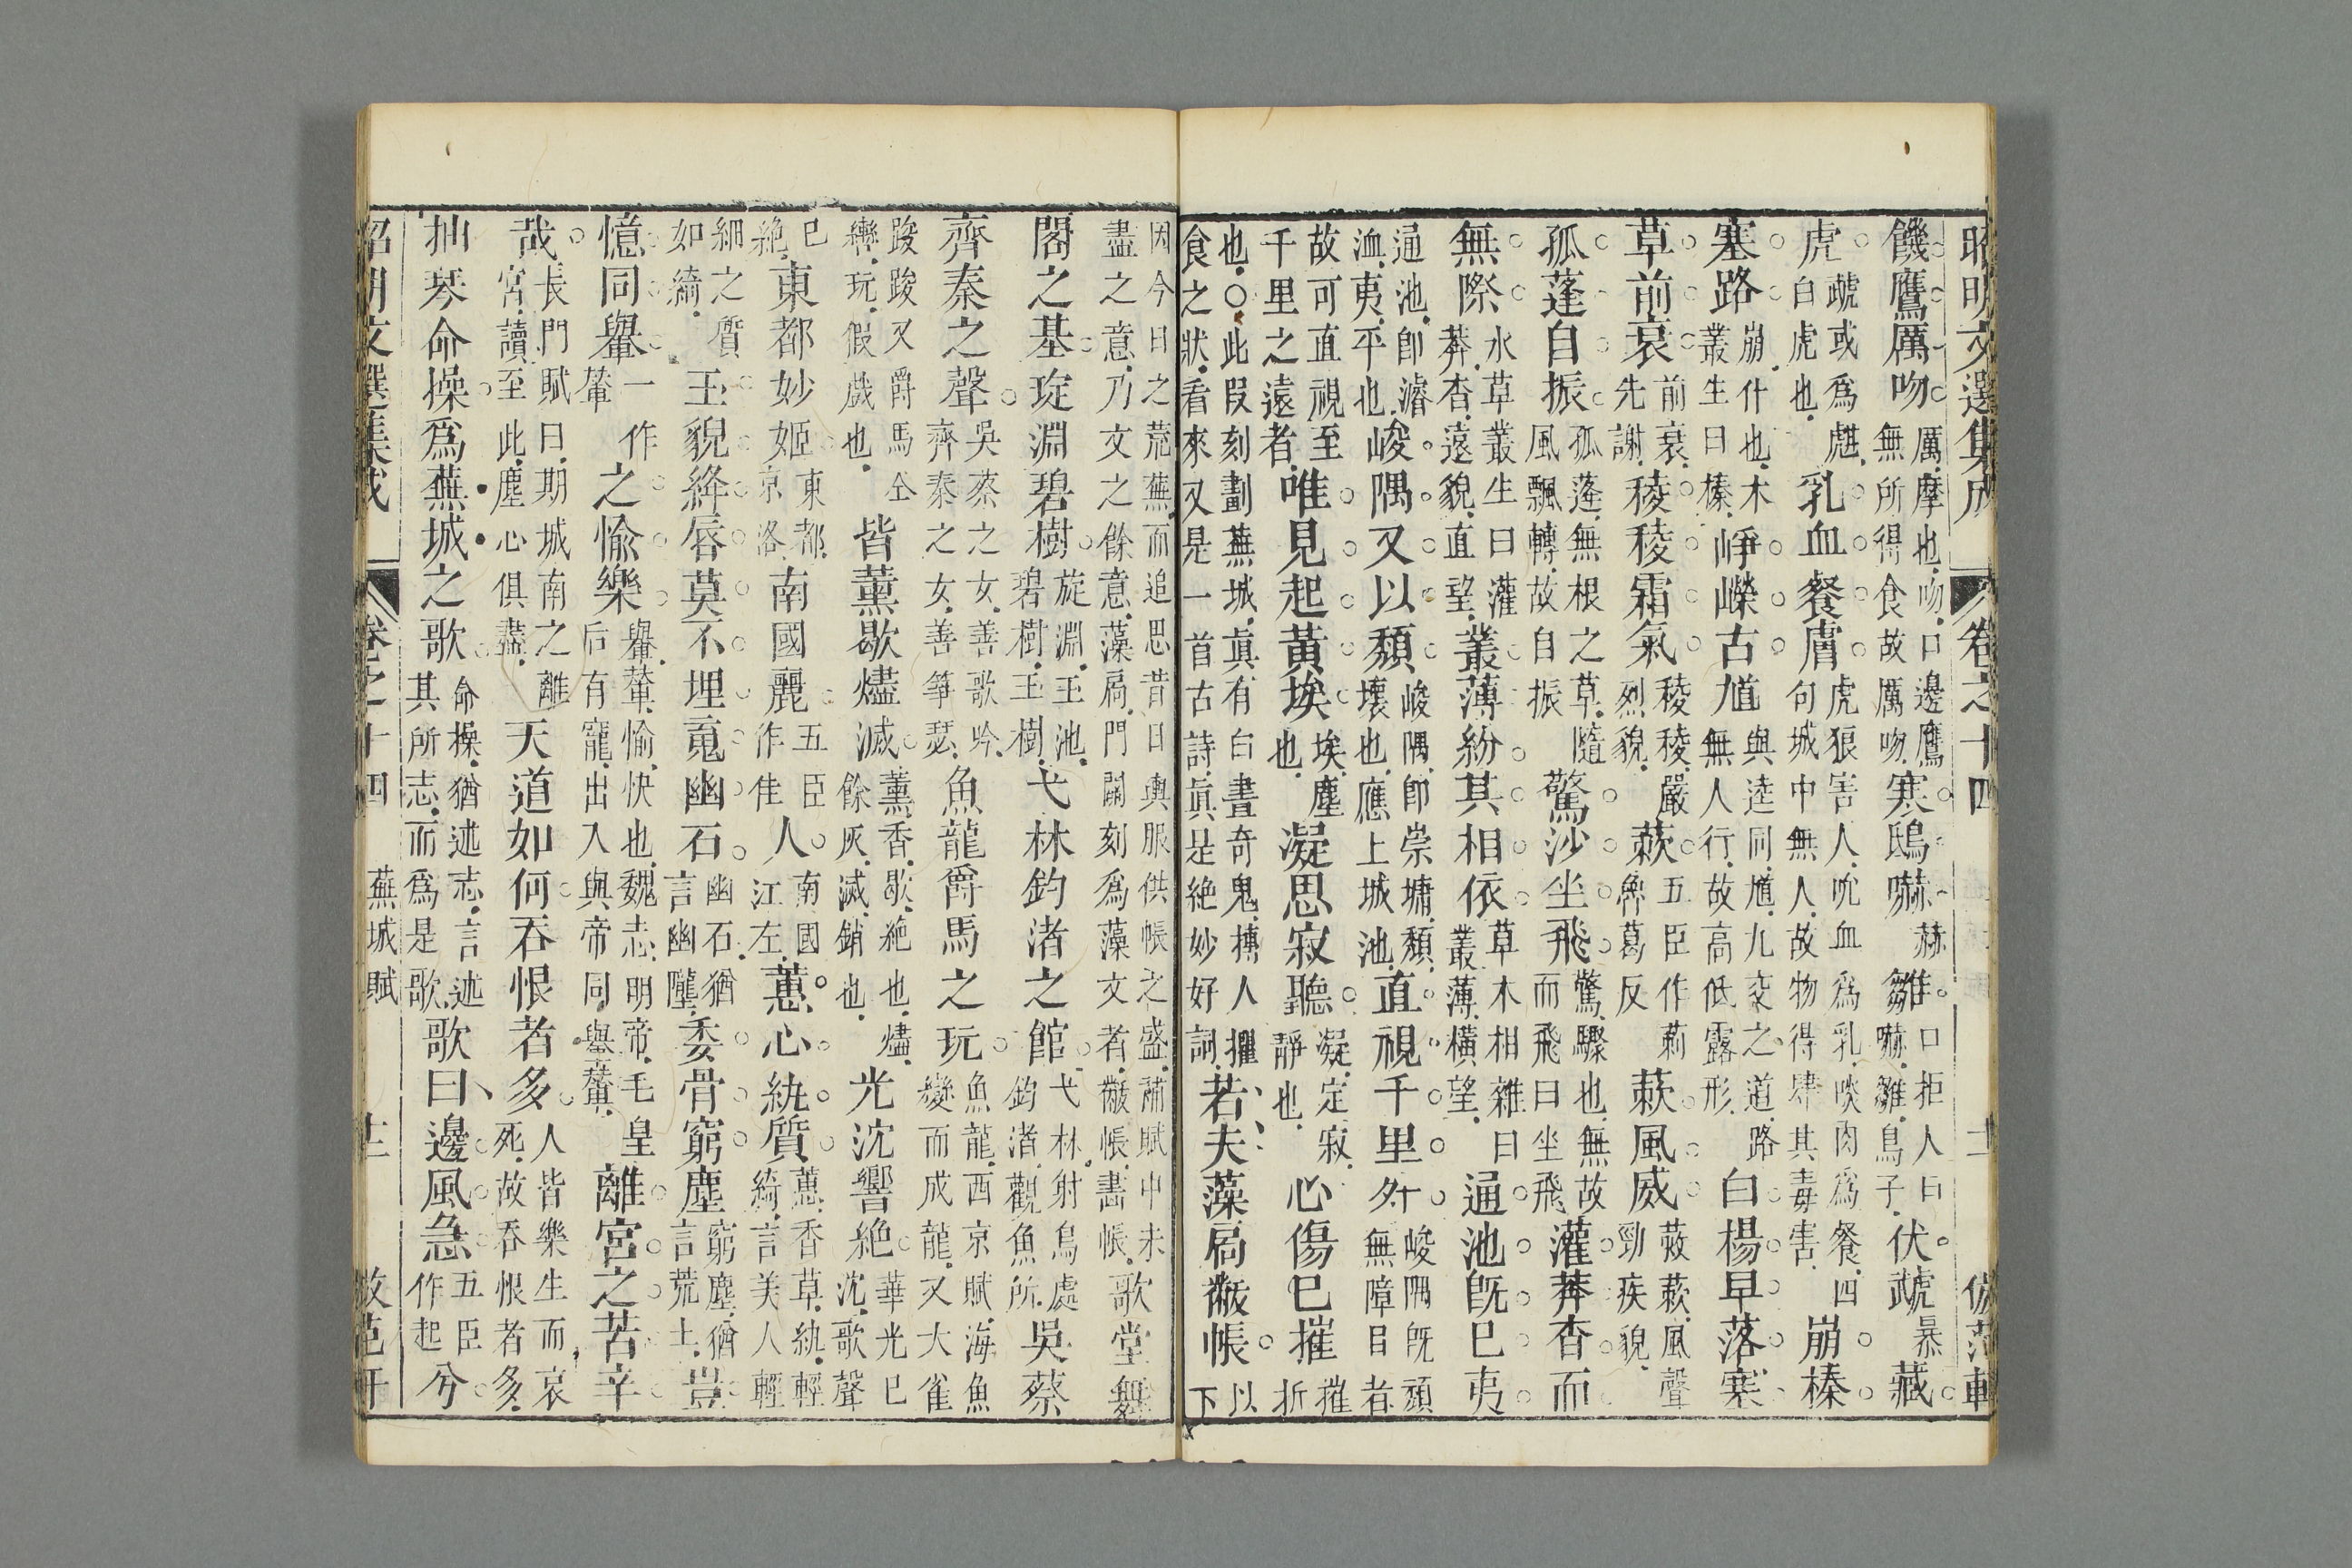 昭明文選集成　卷之十四　十一　倣范軒
饑鷹厲吻厲摩也吻口邊鷹無所得食故厲吻寒鴟嚇赫雛口拒人曰嚇雛鳥子伏虣暴藏
虎虣或爲甝白虎也乳血餐膚虎狼害人吮血爲乳啖肉爲餐四句城中無人故物得肆其毒害崩榛
塞路崩什也木叢生曰榛崢嶸古馗與逵同馗九交之道路無人行故高低露形白楊早落塞
草前衰前衰先謝稜稜霜氣稜稜嚴烈貌蔌五臣作葛反蔌風威蔌蔌風聲勁疾貌
孤蓬自振孤蓬無根之草隨風飄轉故自振驚沙坐飛驚驟也無故而飛曰坐飛灌莽杳而
無際水草叢生曰灌莽杳遠貌直望叢薄紛其相依草木相雜曰叢薄橫望通池既已夷
通池即濬洫夷平也峻隅又以頹峻隅即崇墉頹壞也應上城池直視千里外峻隅既頹無障目者
故可直視至千里之遠者唯見起黃埃埃塵也凝思寂聽凝定寂靜也心傷已摧摧折
也○此叚刻劃蕪城眞有白晝奇鬼搏人攫食之狀看來又是一首古詩眞是絶妙好詞若夫藻扃黻帳以下
因今日之荒蕪而追思昔日輿服供帳之盛補賦中未盡之意乃文之餘意藻扃門闢刻爲藻文者黻帳畫帳歌堂舞
閣之基琁淵碧樹旋淵玉池碧樹玉樹弋林釣渚之館弋林射鳥處釣渚觀魚所吳蔡
齊秦之聲吳蔡之女善歌吟齊秦之女善箏瑟魚龍爵馬之玩魚龍西京賦海魚變而成龍又大雀
踆踆又爵馬仝轡玩假戲也皆薰歇燼滅薰香歇絶也燼餘灰滅銷也光沈響絶華光已沈歌聲
已絶東都妙姬東都京洛南國麗五臣作佳人南國江左蕙心紈質蕙香草紈輕綺言美人輕
細之質如綺玉貌絳唇莫不埋䰟幽石幽石猶言幽隴委骨窮塵窮塵猶言荒土豈
憶同轝一作輦之愉樂轝輦愉快也魏志明帝毛皇后有寵出入與帝同轝輦離宮之苦辛
哉長門賦曰期城南之離宮讀至此塵心俱盡天道如何吞恨者多人皆樂生而哀死故吞恨者多
抽琴命操爲蕪城之歌命操猶述志言述其所志而爲是歌歌曰邊風急五臣作起兮
昭明文選集成　卷之十四　蕪城賦　十二　倣范軒